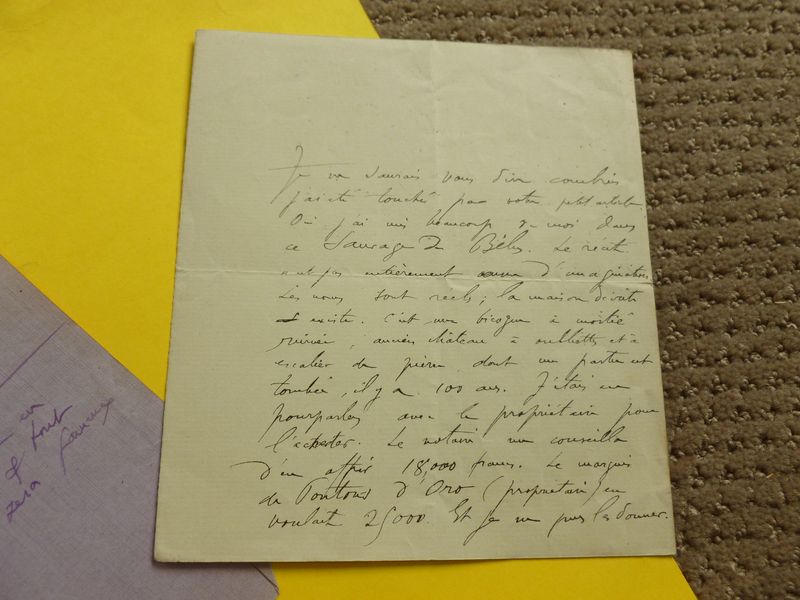 Je ne saurais vous dire combien
j'ai été touché par votre petit article.
Oui j'ai mis beaucoup de moi dans
ce Sauvage du Bélus. Le récit
n'est pas entièrement d'imagination
Les noms sont réels ; la maison décrite
existe. C'est une bicoque à moitié
ruinée, ancien château à oubliettes et à
escalier de pierre, dont une partie est
tombée, il y a 100 ans. J'étais en
pourparlers avec le propriétaire pour
l'acheter. Le notaire me conseilla
d'en offrir 18,000 francs. Le marquis
de d'Oro (propriétaire) en
voulait 25000. Et je ne pus les donner.
en
& tout